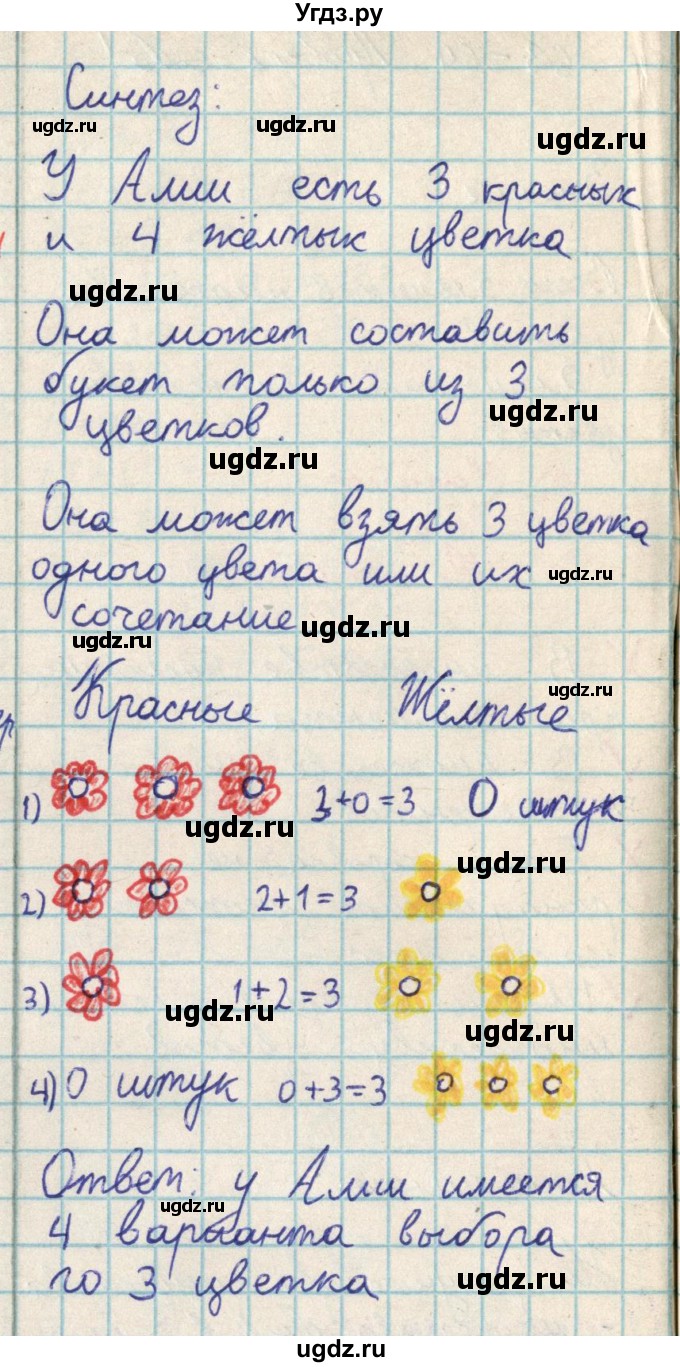 Угдз.ру
Синтез:
ugdz.ru ugdz.ru ugdz.ru
У Алии есть 3 красных
и 4 жёлтых цветка
ugdz.ru
Она может составить
букет только из 3
ugdz.ru
цветков.
ugdz.ru
Она может взять 3 цветка
одного цвета или их
ugdz.ru
сочетание
ugdz.ru ugdz.ru
Красные Жёлтые
ugdz.ru
1) 3+0=3 0 штук
ugdz.ru
2) 2+1=3
ugdz.ru
3) 1+2=3
ugdz.ru ugdz.ru
4) 0 штук 0+3=3
Ответ: у Алии имеется
ugdz.ru
4 варианта выбора
по 3 цветка
ugdz.ru
ugdz.ru